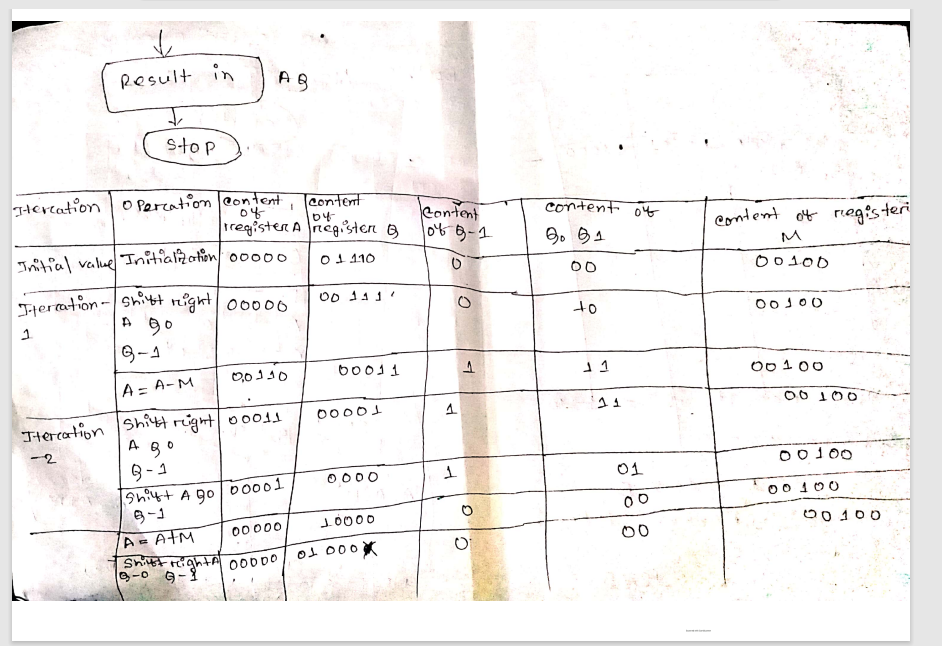 Result in AQ
Stop
Itercation | Opercation | content of rregister A | content of register Q | Content of Q-1 | content of Q0 Q1 | content of rregister M
Initial value | Initialization | 00000 | 01110 | 0 | 00 | 00100
Itercation-1 | Shift right A Q0 Q-1 | 00000 | 00111 | 0 | 10 | 00100
A = A-M | 00110 | 00011 | 1 | 11 | 00100
Itercation-2 | Shift right A Q0 Q-1 | 00011 | 00001 | 1 | 11 | 00100
Shift A Q0 Q-1 | 00001 | 0000 | 1 | 01 | 00100
A = A+M | 00000 | 10000 | 0 | 00 | 00100
Shift right A Q-0 Q-1 | 00000 | 01000 | 0 | 00 | 00100